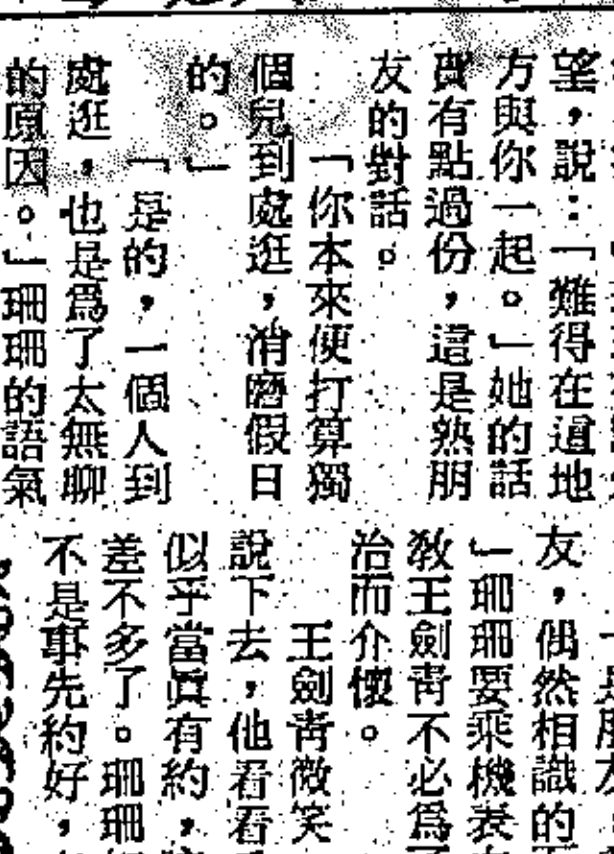 望，說：「難得在這地
方與你一起。」她的話
實有點過份，這是熟朋
友的對話。
「你本來便打算獨
個兒到處逛，消磨假日
的。」
「是的，一個人到
處逛，也是爲了太無聊
的原因。」珊珊的語氣
友，偶然相識的
」珊珊要乘機表
教王劍靑不必爲了
治而介懷。
王劍靑微笑
說下去，他看看
似乎當眞有約，
差不多了。珊珊
不是事先約好，